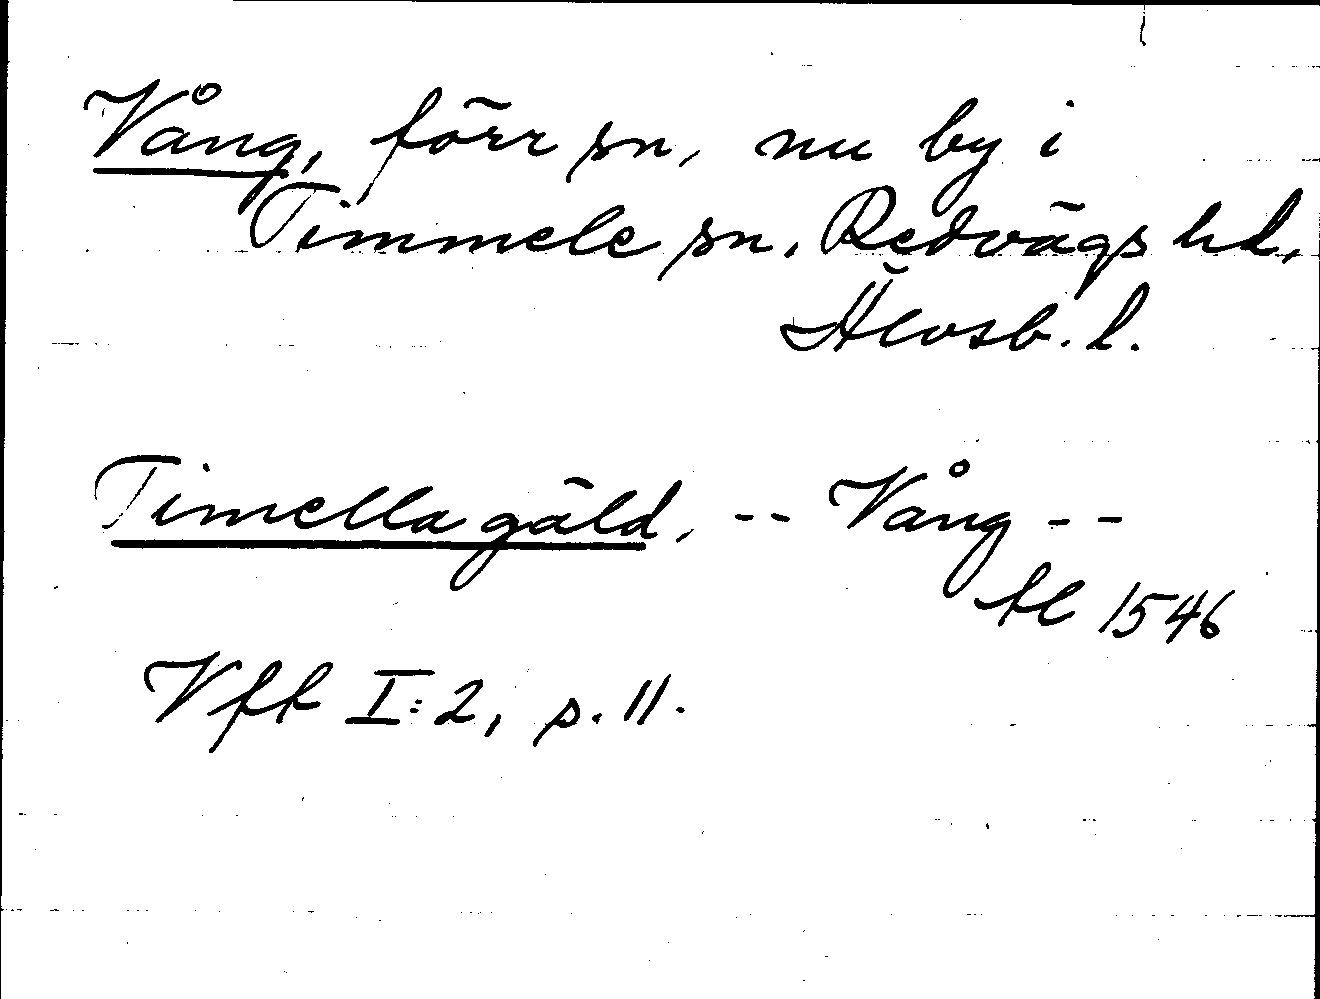 Vång, förr sn, nu by i
Timmele sn, Redvägs hd,
Älvsb. l.
Timella gäld, -- Vång --
tl 1546
Vff I:2, p. 11.